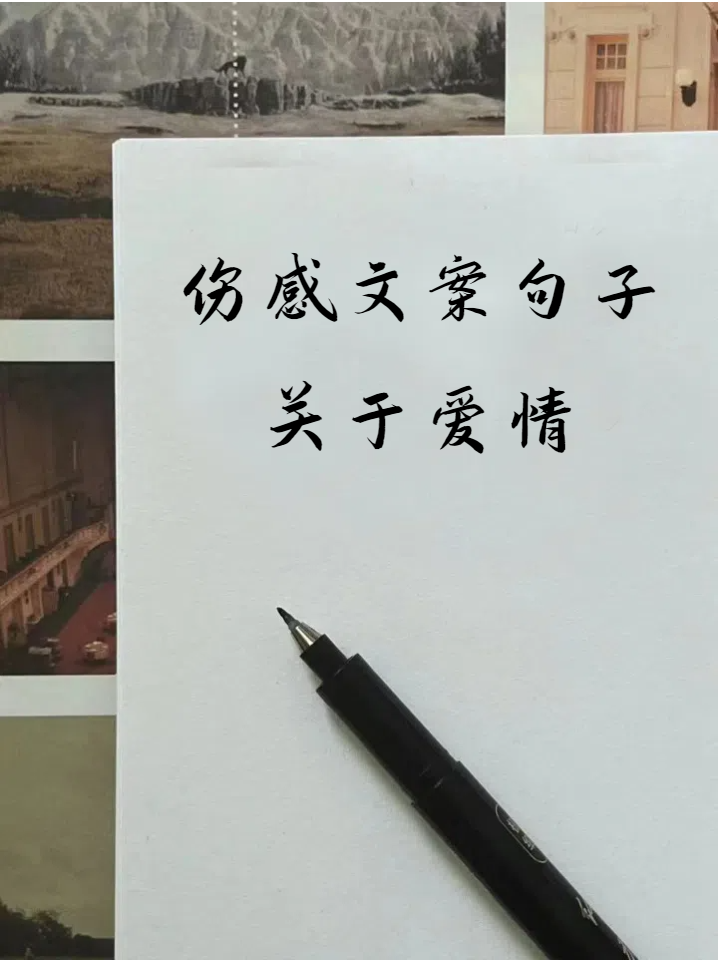 伤感文案句子
关于爱情